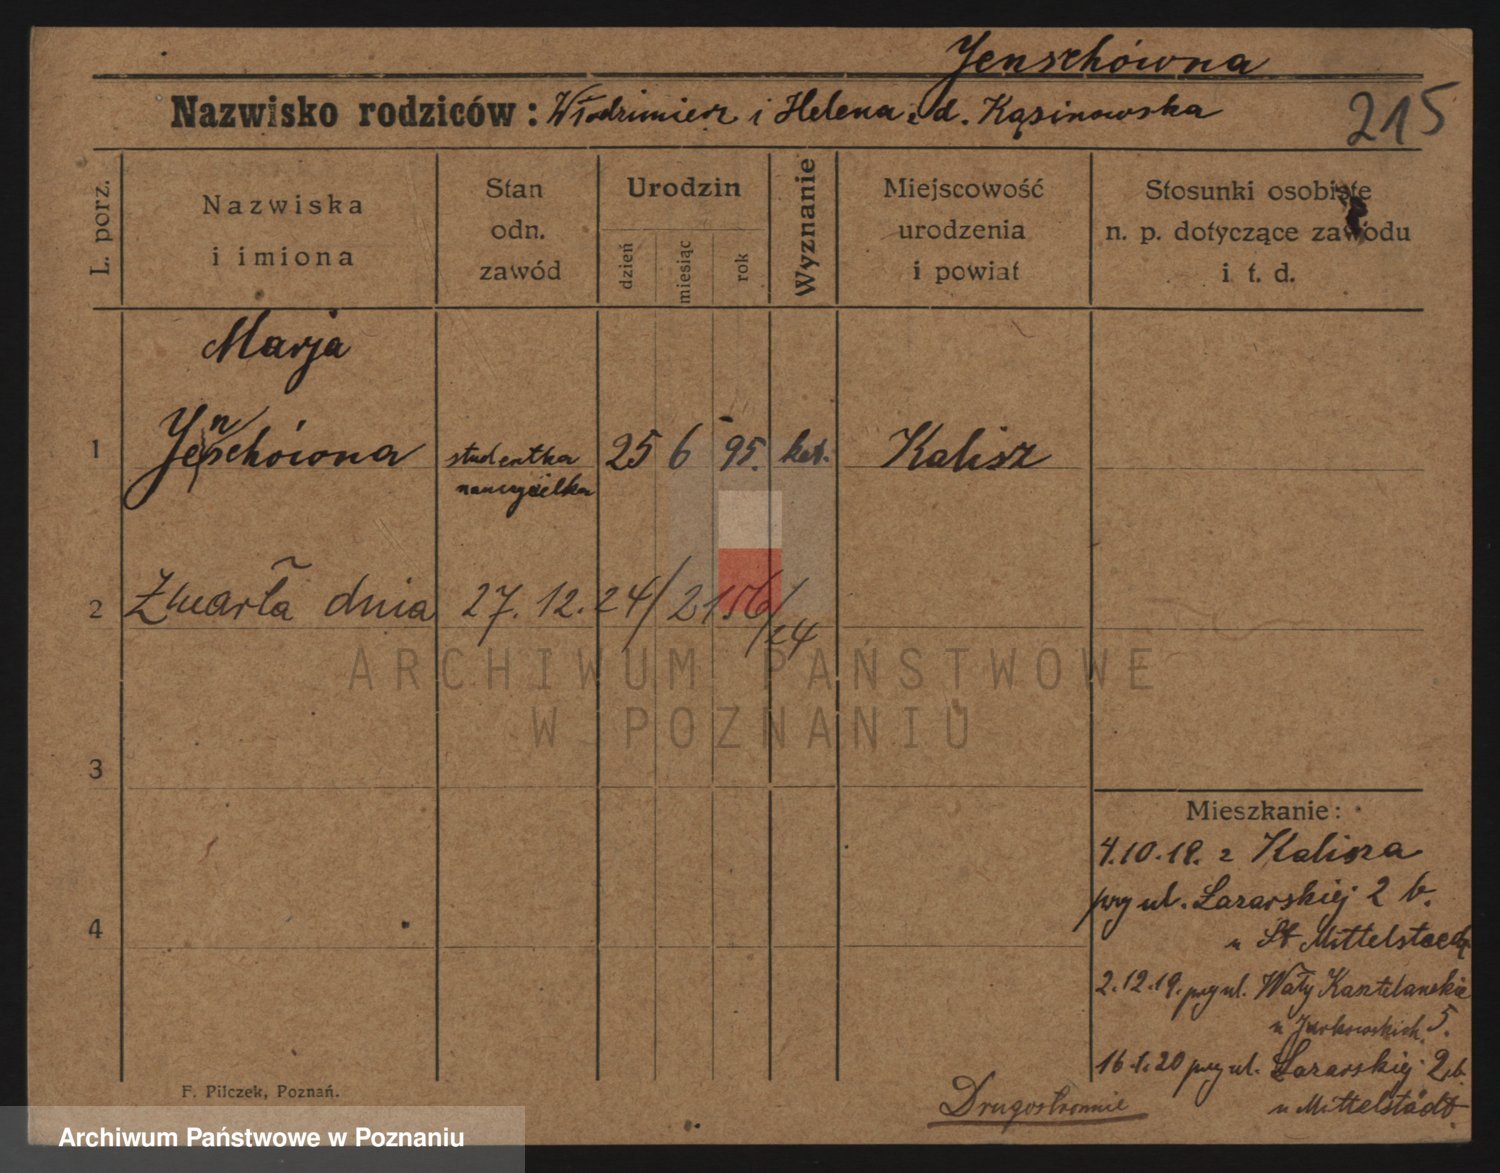 Jenschówna
Nazwisko rodziców: Włodzimierz i Helena z d. Kąsinowska
215
L. porz.
Nazwiska
i imiona
Stan
odn.
zawód
Urodzin
dzień
miesiąc
rok
Wyznanie
Miejscowość
urodzenia
i powiat
Stosunki osobiste
n. p. dotyczące zawodu
i t. d.
Marja
1 Jenschówna studentka 25 6 95. kat. Kalisz
nauczycielka
2 Zmarła dnia 27. 12. 24/2156/24
ARCHIWUM PAŃSTWOWE
W POZNANIU
3
4
Mieszkanie:
4.10.19. z Kalisza
przy ul. Łazarskiej 2 b.
u St Mittelstaedt
2.12.19. przy ul. Wały Kasztelańskie
u Jurkowskich 5.
16.1.20 przy ul. Łazarskiej 2b.
u Mittelstädt
Drugostronnie
F. Pilczek, Poznań.
Archiwum Państwowe w Poznaniu